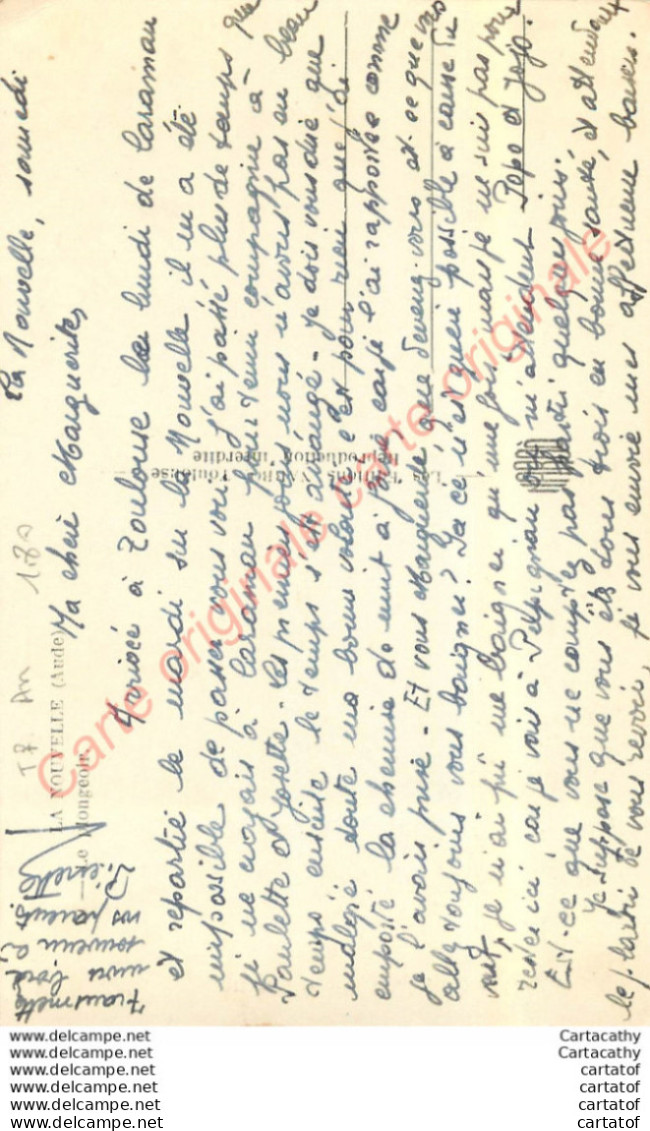 La Nouvelle, samedi
Ma chère Marguerite,
Arrivée à Toulouse lundi de Caraman
et repartie le mardi sur la Nouvelle il m'a été
impossible de passer vous voir. J'ai passé plus de temps que
je ne croyais à Caraman pour tenir compagnie à
Paulette et Josette. Les premiers jours nous n'avons pas eu beau
temps ensuite le temps s'est arrangé. Je dois vous dire que
malgré toute ma bonne volonté c'est pour rien que j'ai
emporté la chemise de nuit à jours car je l'ai rapportée comme
je l'avais prise. Et vous Marguerite que devenez-vous est-ce que vous
allez toujours vous baigner? Ici ce n'est guère possible à cause du
vent, je n'ai pu me baigner qu'une fois mais je ne suis pas pour
rester ici car je vais à Perpignan où m'attendent Pepe et Jojo.
Est-ce que vous ne comptez pas partir quelques jours.
Je suppose que vous êtes tous trois en bonne santé, et attendant
le plaisir de vous revoir, je vous envoie mes affectueux baisers.
Pierrette
Transmettez
mon bon
souvenir à
vos parents
LA NOUVELLE (Aude)
Le Plongeoir
Les Editions NARBO - Toulouse
Reproduction interdite
TB An 180
Carte originale carte originale
www.delcampe.net Cartacathy
www.delcampe.net Cartacathy
www.delcampe.net cartatof
www.delcampe.net cartatof
www.delcampe.net cartatof
www.delcampe.net cartatof